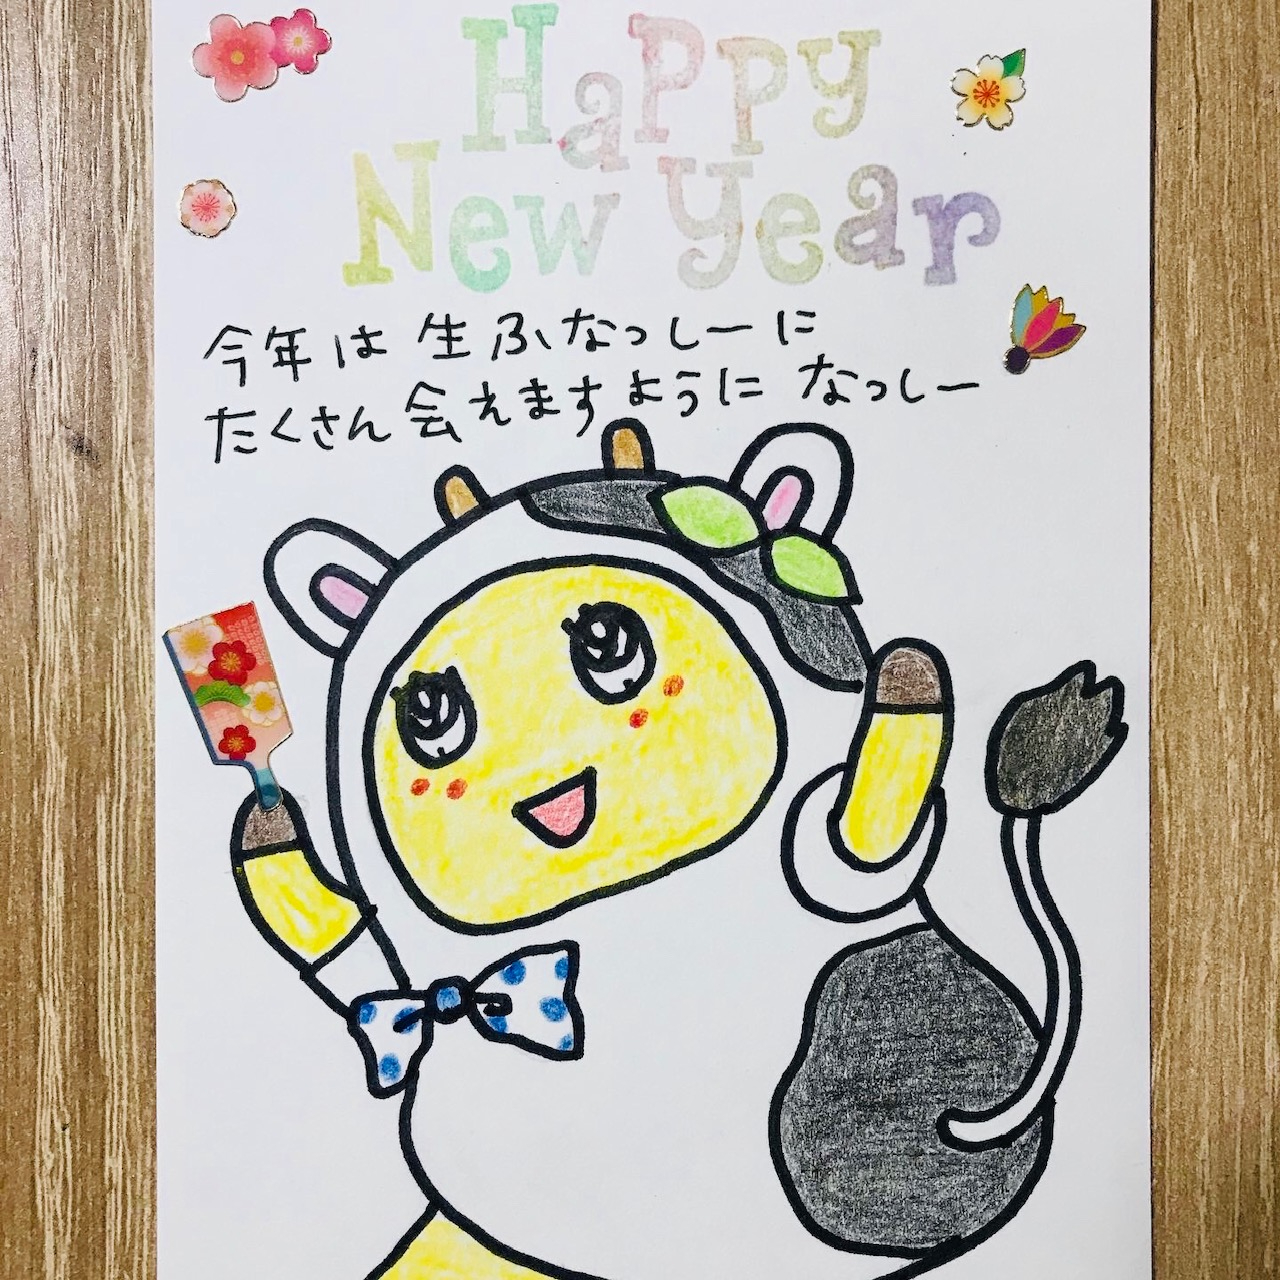 Happy
New Year
今年は 生ふなっしーに
たくさん会えますように なっしー